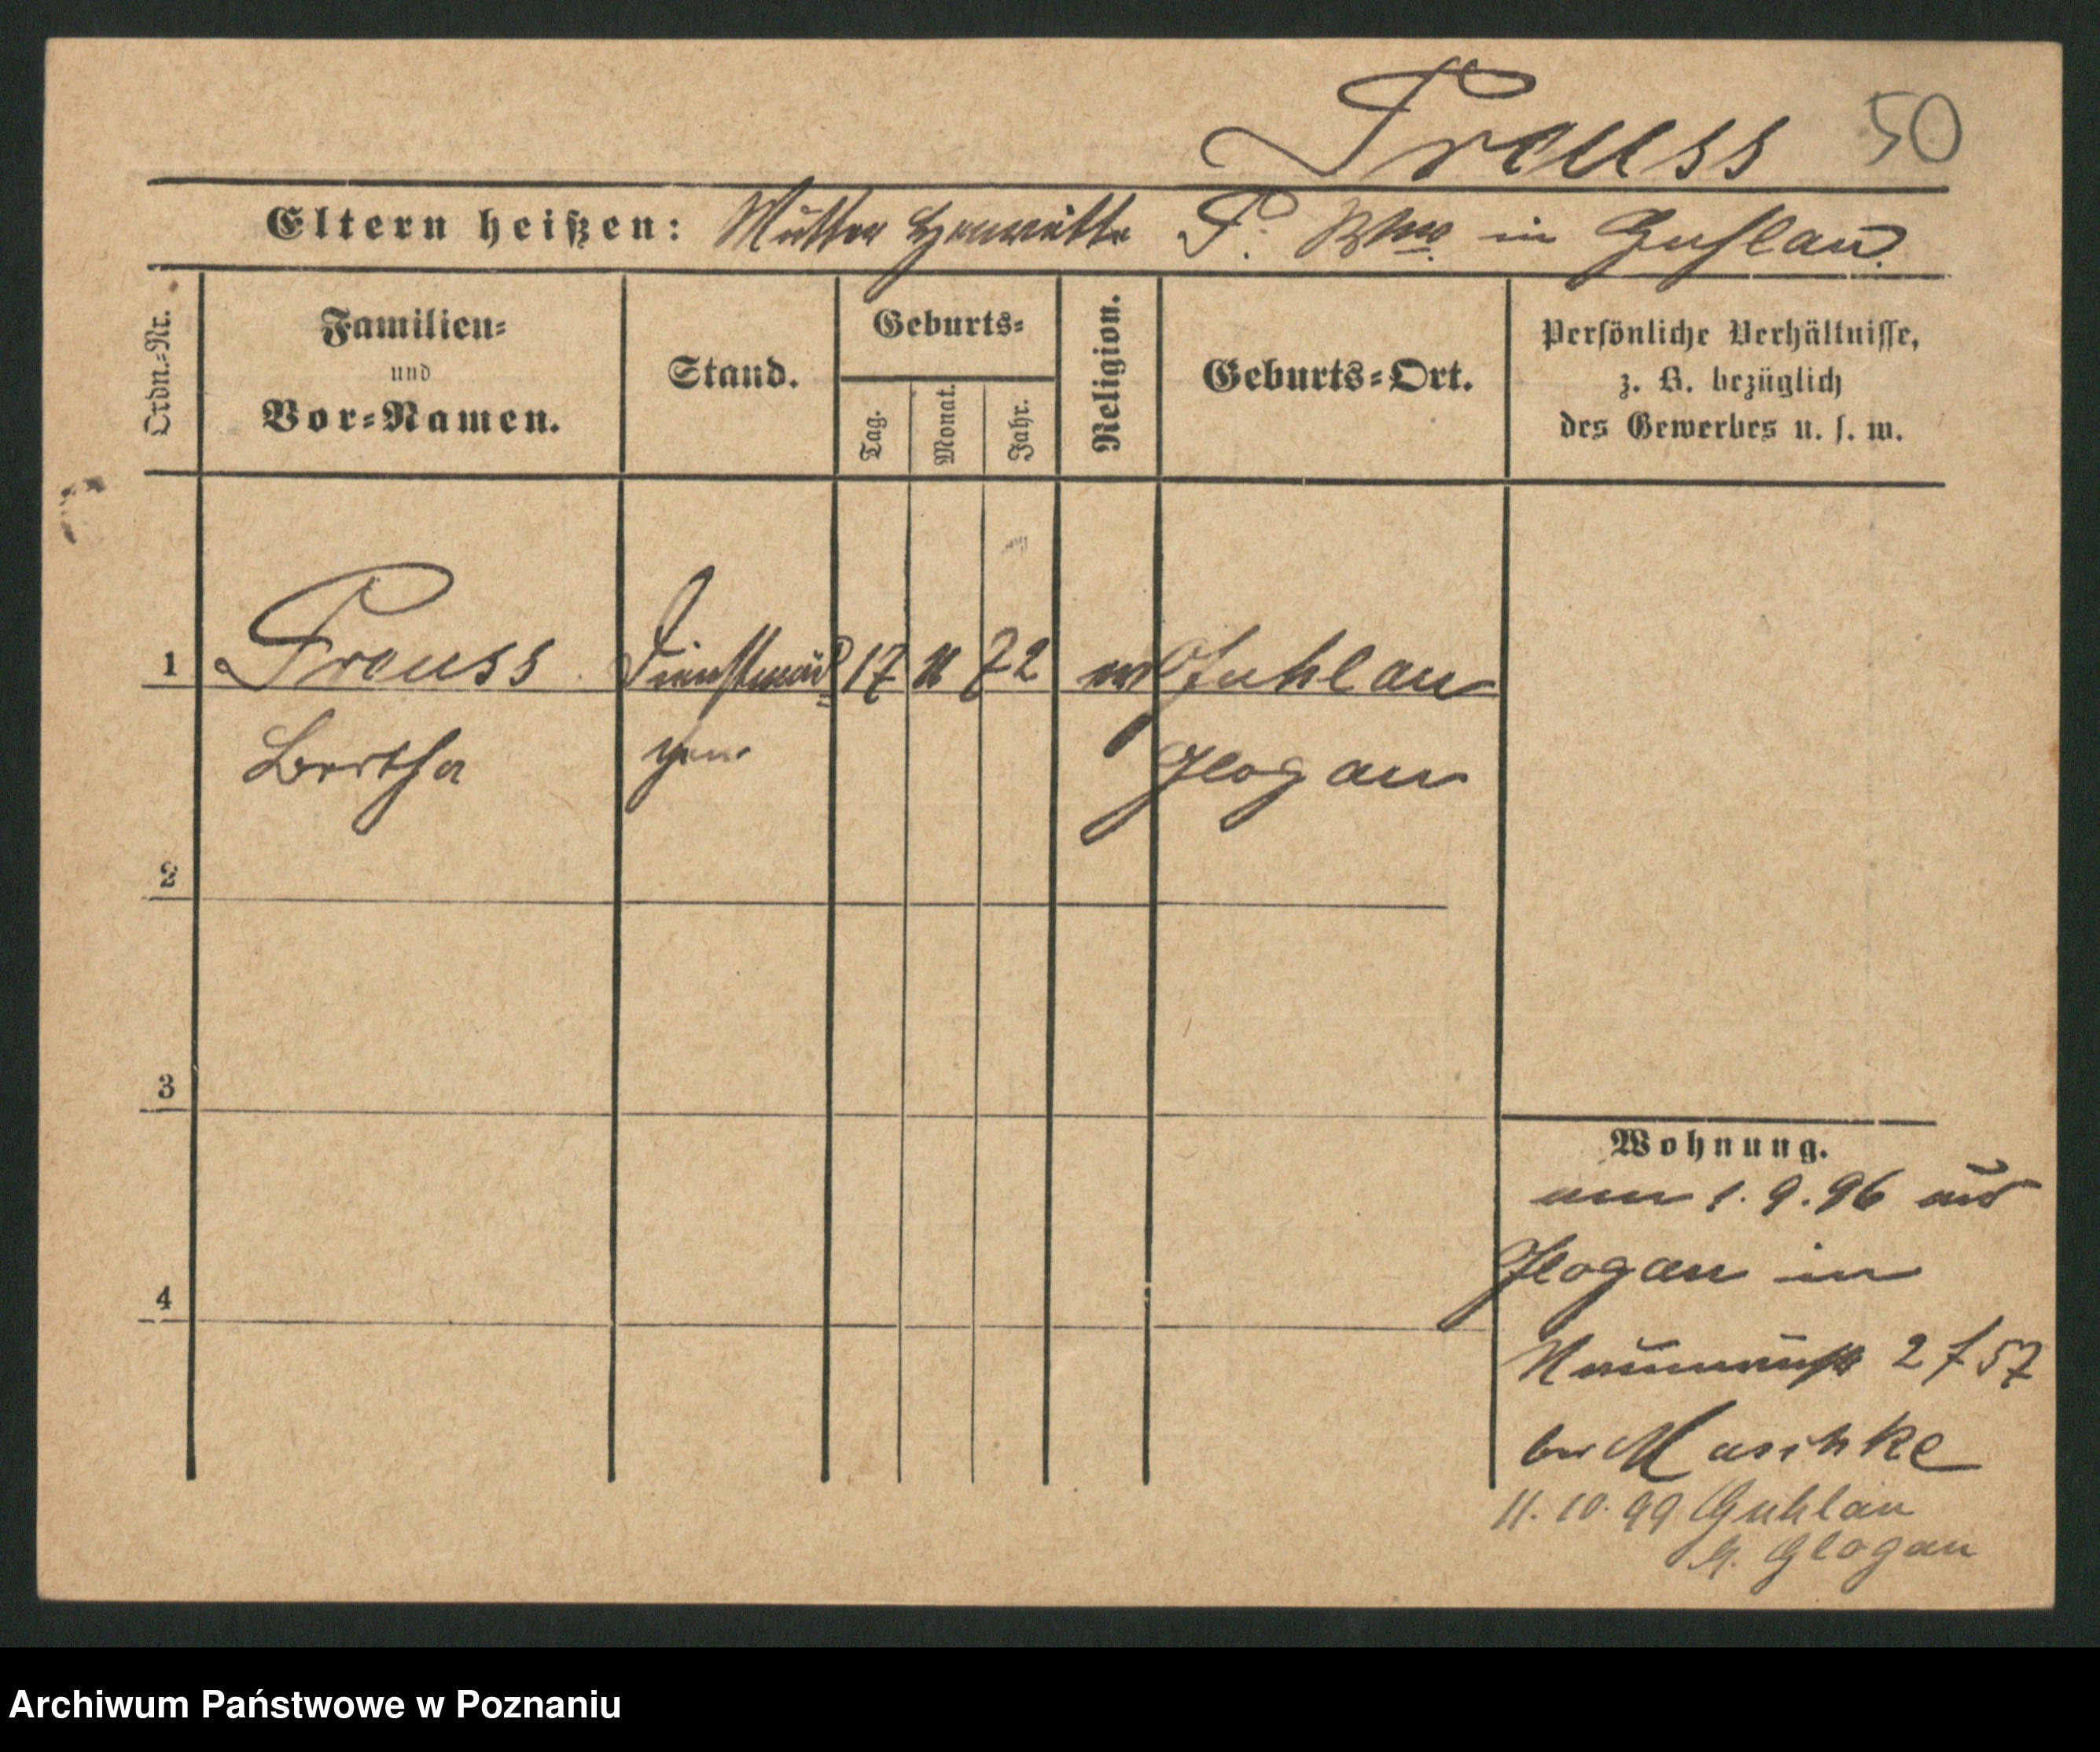 Preuss 50
Eltern heißen: Mutter Henriette P. Wwe in Guhlau.
Ordn.=Nr.
Familien=
und
Vor=Namen.
Stand.
Geburts=
Tag.
Monat.
Jahr.
Religion.
Geburts=Ort.
Persönliche Verhältnisse,
z. B. bezüglich
des Gewerbes u. s. w.
1 Preuss Dienstmäd= 17 11 72 ev Guhlau
Bertha chen Glogau
2
3
4
Wohnung.
am 1. 9. 96 aus
Glogau in
2 / 57
bei Maschke
11. 10. 99 Guhlau
Glogau
Archiwum Państwowe w Poznaniu